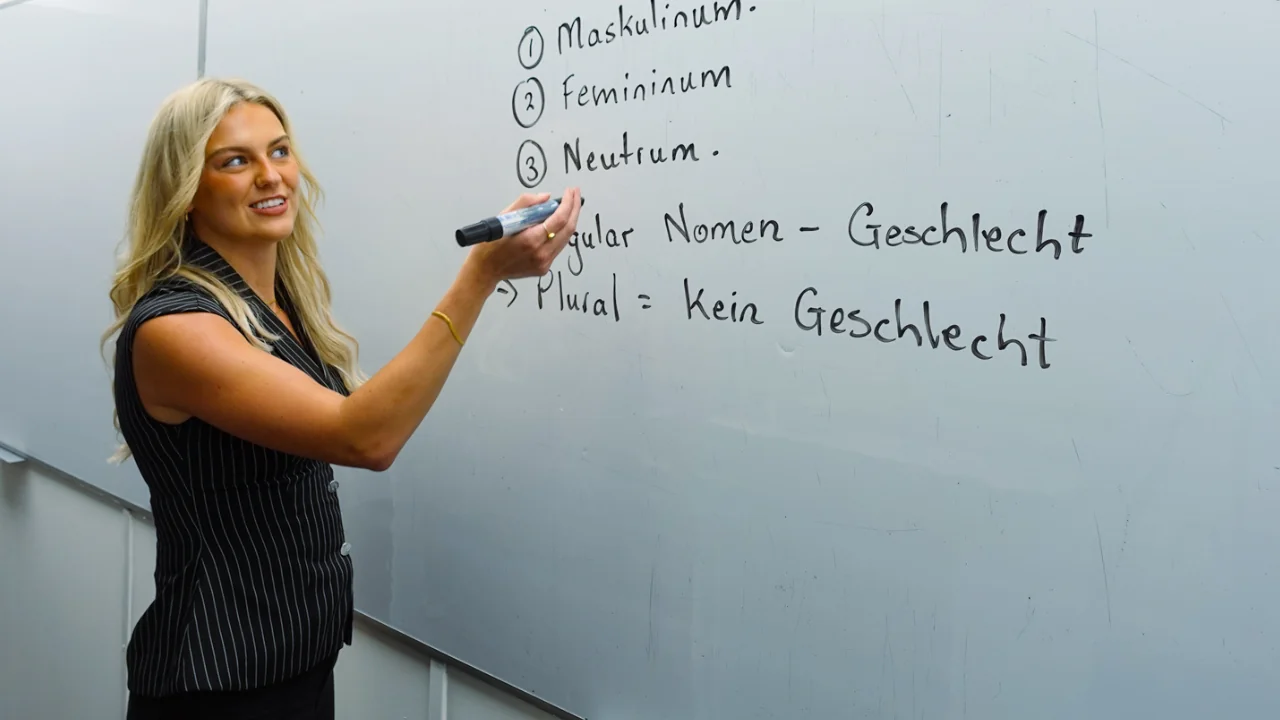 ① Maskulinum.
② Femininum
③ Neutrum.
Nomen - Geschlecht
→ Plural = Kein Geschlecht